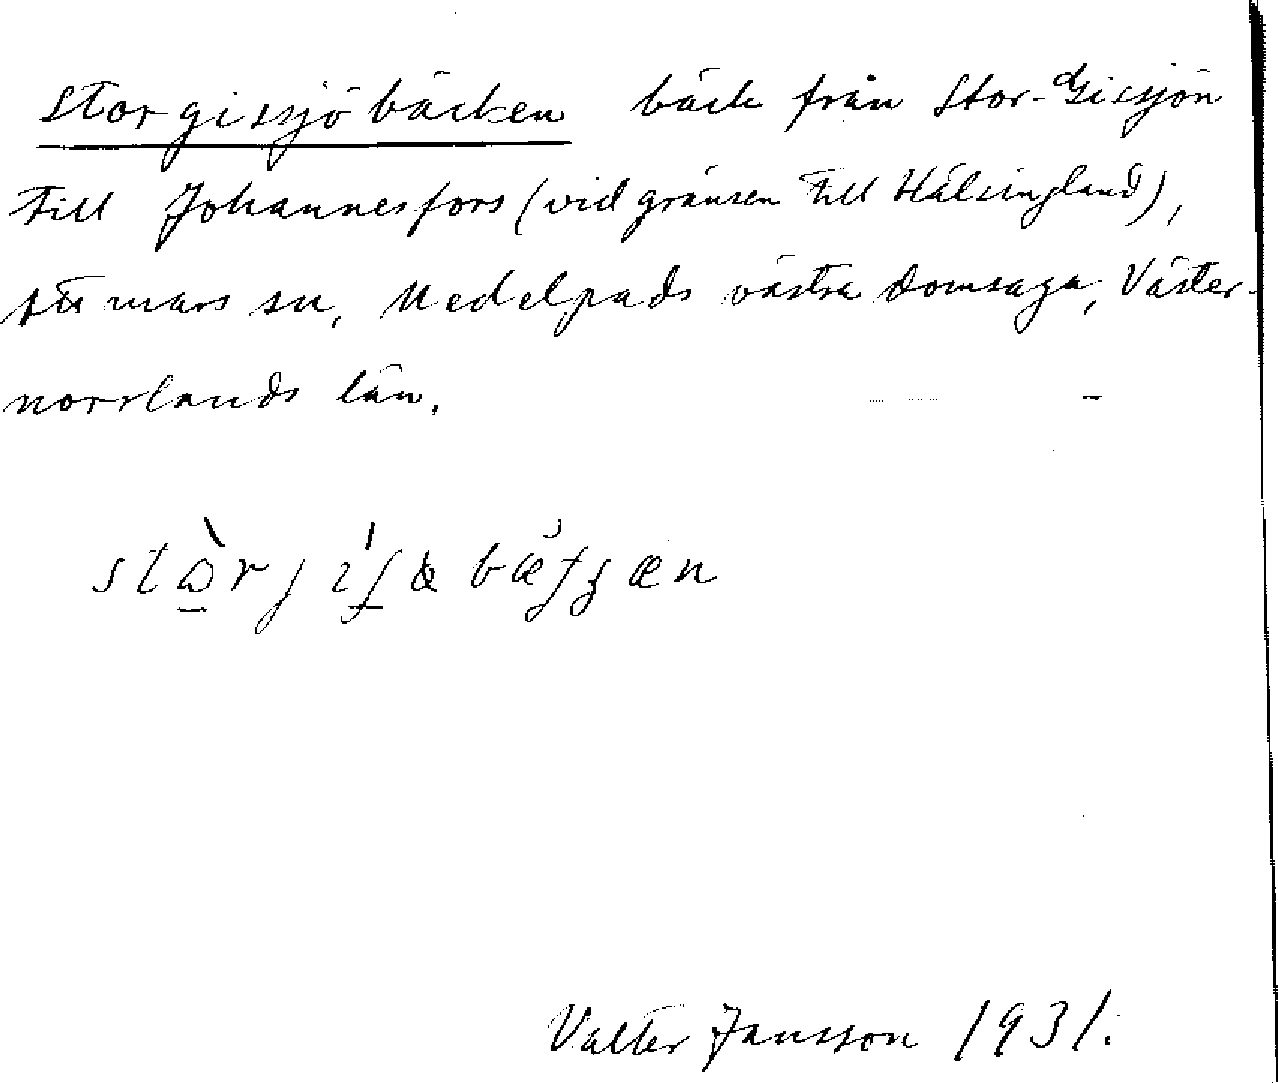 Storgissjöbäcken bäck från Stor-Gissjön
till Johannesfors (vid gränsen till Hälsingland),
Attmars sn, Medelpads västra domsaga, Väster-
norrlands län.
Valter Jansson 1931.